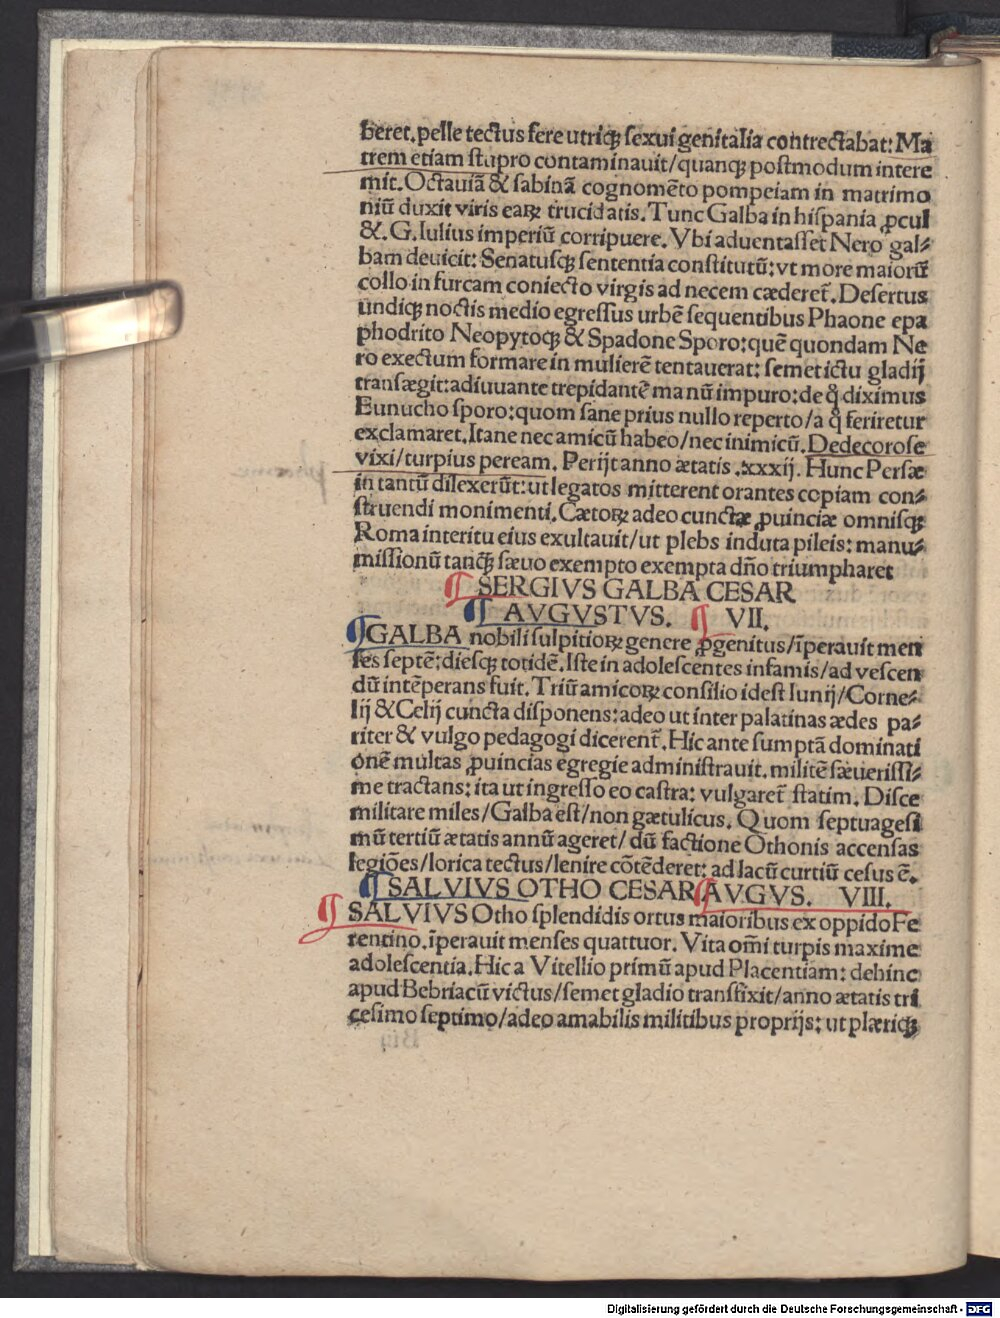 beret.pelle tectus fere utriqꝫ sexui genitalia contrectabat: Ma
trem etiam stupro contaminauit/quanqꝫ postmodum intere
mit.Octauiā & sabinā cognomēto pompeiam in matrimo
niū duxit viris eaꝝ trucidatis.Tunc Galba in hispania ꝓcul
&.G.Iulius imperiū corripuere.Vbi aduentasset Nero gal⸗
bam deuicit: Senatusqꝫ sententia constitutū:vt more maiorū
collo in furcam coniecto virgis ad necem cæderet̄.Desertus
undiqꝫ noctis medio egressus urbē sequentibus Phaone epa
phodrito Neopytoqꝫ & Spadone Sporo:quē quondam Ne
ro exectum formare in mulierē tentauerat: semet ictu gladij
transægit:adiuuante trepidantē manū impuro:de q̊ diximus
Eunucho sporo:quom sane prius nullo reperto/a q̊ feriretur
exclamaret.Itane nec amicū habeo/nec inimicū.Dedecorose
vixi/turpius peream. Perijt anno ætatis .xxxij. Hunc Persæ
in tantū dilexerūt:ut legatos mitterent orantes copiam con⸗
struendi monimenti.Cætoꝝ adeo cunctæ ꝓuinciæ omnisqꝫ
Roma interitu eius exultauit/ut plebs induta pileis: manu⸗
missionū tanqꝫ sæuo exempto exempta dño triumpharet
¶ SERGIVS GALBA CESAR
¶ AVGVSTVS. ¶ VII.
¶GALBA nobili sulpitioꝝ genere ꝓgenitus/īperauit men
ses septē:diesqꝫ totidē.Iste in adolescentes infamis/ad vescen
dū intēperans fuit.Triū amicoꝝ consilio idest Iunij/Corne⸗
lij & Celij cuncta disponens:adeo ut inter palatinas ædes pa⸗
riter & vulgo pedagogi dicerent̄.Hic ante sumptā dominati
onē multas ꝓuincias egregie administrauit.militē sæuerissi⸗
me tractans: ita ut ingresso eo castra: vulgaret̄ statim. Disce
militare miles/Galba est/non gætulicus. Quom septuagesi
mū tertiū ætatis annū ageret/ dū factione Othonis accensas
legiōes/lorica tectus/lenire cōtēderet: ad lacū curtiū cesus ē.
¶ SALVIVS OTHO CESAR ¶AVGVS. VIII.
¶ SALVIVS Otho splendidis ortus maioribus ex oppido Fe
rentino.īperauit menses quattuor. Vita om̄i turpis maxime
adolescentia.Hic a Vitellio primū apud Placentiam: dehinc
apud Bebriacū victus/semet gladio transfixit/anno ætatis tri
cesimo septimo/adeo amabilis militibus proprijs: ut plæriqꝫ
Digitalisierung gefördert durch die Deutsche Forschungsgemeinschaft - DFG